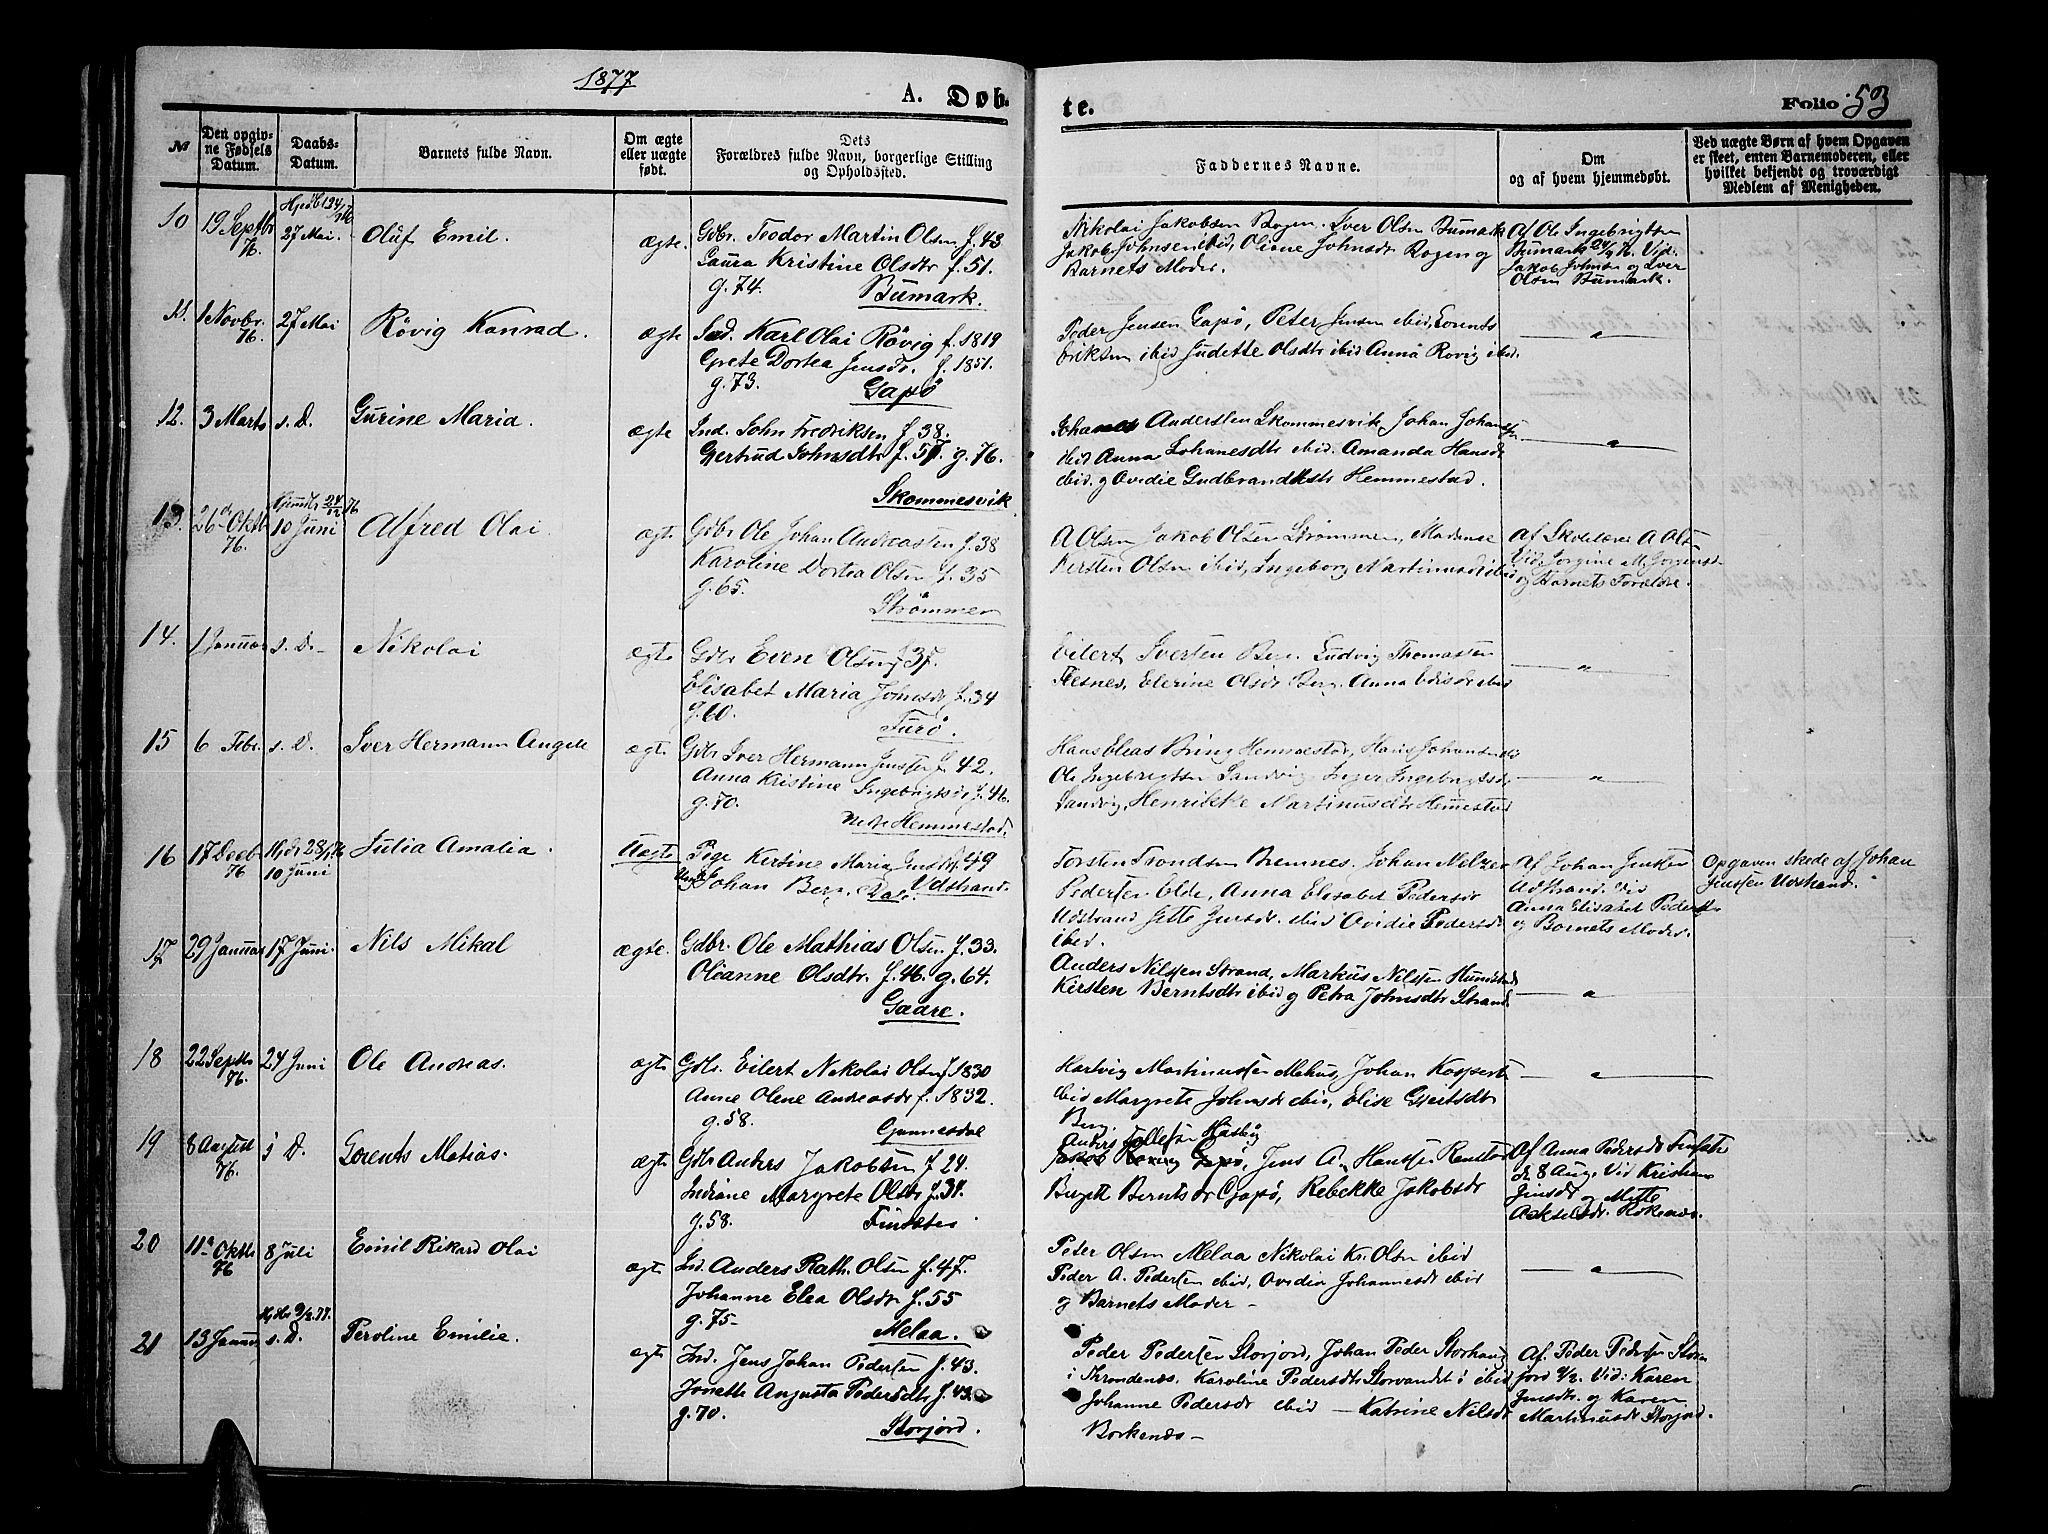 1877
A. Døb-
te.
Folio 53
№
Den opgiv-
ne Fødsels
Datum.
Daabs-
Datum.
Barnets fulde Navn.
Om ægte
eller uægte
født.
Dets
Forældres fulde Navn, borgerlige Stilling
og Opholdssted.
Faddernes Navne.
Om
og af hvem hjemmedøbt.
Ved uægte Børn af hvem Opgaven
er skeet, enten Barnemoderen, eller
hvilket bekjendt og troværdigt
Medlem af Menigheden.
10
19 Septbr
76.
27 Mai.
Oluf Emil.
ægte
Gdbr. Teodor Martin Olsen f. 43
Laura Kristine Olsdtr f. 51.
g. 74. Bumark.
Nikolai Jakobsen Bogen. Iver Olsen Bumark
Jakob Johnsen ibid, Oliane Johnsdr Bogen og
Barnets Moder.
Af Ole Ingebrigtsen
Bumark 24/9 76. Vid:
Jakob Johnsen og Iver
Olsen Bumark.
11.
1 Novbr.
76.
27 Mai
Rövig Konrad.
ægte
Ind. Karl Olai Rövig f. 1819
Grete Dortea Jensdr. f. 1851.
g. 73. Gapö
Peder Jensen Gapö, Peter Jensen ibid, Lorents
Eriksen ibid Judette Olsdtr ibid Anna Rovig ibid.
12.
3 Marts
s. D.
Gurine Maria.
ægte
Ind. John Fredriksen f. 38.
Gertrud Johnsdtr f. 57. g. 76.
Skommesvik
Johanes Anderssen Skommesvik, Johan Johansen
ibid Anna Johanesdtr ibid. Amanda Hansdr
ibid. og Ovidie Gudbrandsdtr Hemmestad.
13.
26 d Oktb
76.
Hjemdbt 24/12 76
10 Juni
Alfred Olai
ægte
Gdbr Ole Johan Andreassen f. 38
Karoline Dortea Olsen f. 35
g. 65.
Strömmen
A Olsen Jakob Olsen Strömmen, Madense
Kersten Olsen ibid, Ingeborg Martinusdr ibid
Af Skolelærer A Olsen
Vid Jorgine M. Jorgensdr
og Barnets Forældre.
14.
1 Januar
s. D.
Nikolai
ægte
Gdbr Even Olsen f. 37.
Elisabet Maria Johnsdr f. 34
g. 60. Turö.
Eilert Iversen Berg. Ludvig Thomassen
Flesnes, Elerine Olsdr Berg. Anna Edisdr ibid
15
6 Febr.
s. D.
Iver Hermann Angell
ægte
Gdbr Iver Hermann Jenssen f. 42.
Anna Kristine Ingebrigtsdr f. 46.
g. 70.
Nedre Hemmestad.
Hans Eleas Bring Hemmestad, Hans Johansen ibid
Ole Ingebrigtsen Sandvig Inger Ingebrigtsdr
Sandvig, Henrikke Martinusdtr Hemmestad
16
17 Decb
76
10 Juni
Julia Amalia.
Uægte
Pige Kerstine Maria Jensdtr f. 49
Johan Berg. Dal. Udstrand.
Torsten Trondsen Bremnes. Johan Meltzer
Pedersen Elde, Anna Elisabet Pedersdr
Udstrand Jette Jensdr. ibid Ovidie Pedersdr
ibid.
Af Johan Jenssen
Udstrand. Vid
Anna Elisabet Pedersdr
og Barnets Moder.
Opgaven skede af Johan
Jenssen Udstrand.
17
29 Januar
17 Juni.
Nils Mikal
ægte.
Gdbr. Ole Mathias Olsen f. 33.
Olianne Olsdtr. f. 46. g. 64.
Gaare.
Anders Nilssen Strand, Markus Nilssen Hunstad
Kirsten Berntsdtr ibid og Petra Johnsdtr Strand
18
22 Septbr
76.
24 Juni
Ole Andreas.
ægte
Gdbr. Eilert Nikolai Olsen f. 1830
Anne Olene Andreasdr f. 1832.
g. 58. Gunnesdal
Hartvig Martinussen Mehus, Johan Kaspersen
ibid Margrete Johnsdr ibid, Elise Gjertsdtr
Berg.
19
8 August
76.
s D.
Lorents Matias.
ægte
Gdbr Anders Jakobsen f. 24.
Indiane Margrete Olsdtr f. 31.
g. 58. Finsæter
Anders Tollefsen Husby
Jakob Gapö, Jens A. Hanssen Renstad
Birgitte Berntsdr Gapö, Rebekke Jakobsdr
Af Anna Pedersdr Finsæter
d. 8 Aug. Vid Kristiane
Jensdr og Mette
Akselsdr. Rökenes.
20
11 Oktbr
76
8 Juli
Emil Rikard Olai
ægte
Ind. Anders Rath. Olsen f. 47.
Johanne Elea Olsdr f. 55
g. 75-
Melaa.
Peter Olsen Melaa Nikolai Kr. Olsen ibid
Peder A. Pedersen ibid, Ovidia Johannesdr ibid
og Barnets Moder -
21
13 Januar
Hjdbt 9/2. 77.
s. D.
Peroline Emilie.
ægte
Ind. Jens Johan Pedersen f. 43.
Jonette Augusta Pedersdtr f. 43.
g. 70.
Storjord.
Peder Pedersen Storjord, Johan Peder Storhaug
i Trondenes, Karoline Pedersdtr Storvandet i ibid
Johanne Pedersdr ibid - Katrine Nilsdr
Borkenæs -
Af. Peder Pedersen Stor-
jord 9/2. Vid: Karen
Jensdtr. og Karen
Martinusdr Storjord.